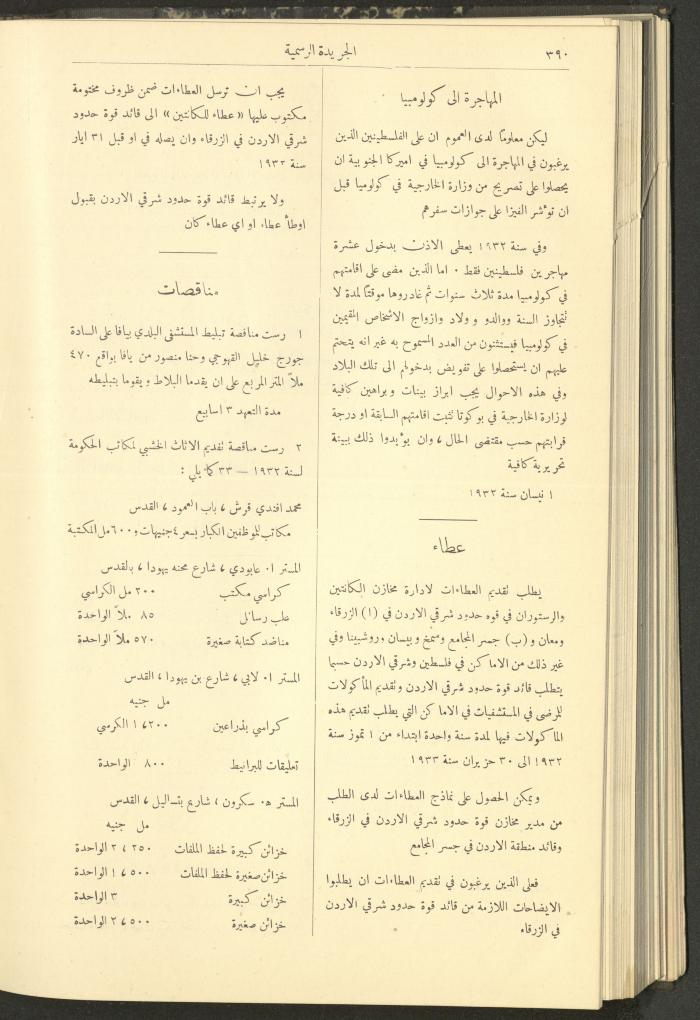 ٣٩٠
الجريدة الرسمية
المهاجرة الى كولومبيا
ليكن معلوماً لدى العموم ان على الفلسطينين الذين
يرغبون في المهاجرة الى كولومبيا في اميركا الجنوبية ان
يحصلوا على تصريح من وزارة الخارجية في كولوميا قبل
ان تؤشر الفيزا على جوازات سفرهم
وفي سنة ١٩٣٢ يعطى الاذن بدخول عشرة
مهاجرين فلسطينين فقط ٠ اما الذين مضى على اقامتهم
في كولومبيا مدة ثلاث سنوات ثم غادروها موقتاً لمدة لا
تتجاوز السنة ووالدو و ولاد وازواج الاشخاص المقيمين
في كولومبيا فيستثنون من العدد المسموح به غير انه يتحتم
عليهم ان يستحصلوا على تفويض بدخولهم الى تلك البلاد
وفي هذه الاحوال يجب ابراز بينات وبراهين كافية
لوزارة الخارجية في بوكوتا تثبت اقامتهم السابقة او درجة
قرابتهم حسب مقتضى الحال ، وان يؤيدوا ذلك ببينة
تحريرية كافية
١ نيسان سنة ١٩٣٢
عطاء
يطلب تقديم العطاءات لادارة مخازن الكانتين
والرستوران في قوه حدود شرقي الاردن في (١) الزرقاء
ومعان و(ب) جسر المجامع وسمخ وبيسان وروشبينا وفي
غير ذلك من الاماكن في فلسطين وشرقي الاردن حسبما
يتطلب قائد قوة حدود شرقي الاردن وتقديم المأكولات
للمرضى في المستشفيات في الاماكن التي يطلب تقديم هذه
الماكولات فيها لمدة سنة واحدة ابتداء من ١ تموز سنة
١٩٣٢ الى ٣٠ حزيران سنة ١٩٣٣
ويمكن الحصول على نماذج العطاءات لدى الطلب
من مدير مخازن قوة حدود شرقي الاردن في الزرقاء
وقائد منطقة الاردن في جسر المجامع
فعلى الذين يرغبون في تقديم العطاءات ان يطلبوا
الايضاحات اللازمة من قائد قوة حدود شرقي الاردن
في الزرقاء
يجب ان ترسل العطاءات ضمن ظروف مختومة
مكتوب عليها «عطاء للكانتين» الى قائد قوة حدود
شرقي الاردن في الزرقاء وان يصله في او قبل ٣١ ايار
سنة ١٩٣٢
ولا يرتبط قائد قوة حدود شرقي الاردن بقبول
اوطأ عطاء او اي عطاء كان
مناقصات
١ رست مناقصة تبليط المستشفى البلدي بيافا على السادة
جورج خليل القهوجي وحنا منصور من يافا بواقع ٤٧٠
ملاً المتر المربع على ان يقدما البلاط ويقوما بتبليطه
مدة التعهد ٣ اسابيع
٢ رست مناقصة تقديم الاثاث الخشبي لمكاتب الحكومة
لسنة ١٩٣٢ — ٣٣ كما يلي :
محمد افندي قرش ، باب العمود ، القدس
مكاتب للموظفين الكبار بسعر ٤ جنيهات و ٦٠٠ مل المكتبة
المستر ا٠ عابودي ، شارع محنه يهودا ، بالقدس
كراسي مكتب ٢٠٠ مل الكرسي
علب رسائل ٨٥ ملاً الواحدة
مناضد كتابة صغيرة ٥٧٠ ملاً الواحدة
المستر ا٠ لابي ، شارع بن يهودا ، القدس
مل جنيه
كراسي بذراعين ١،٢٠٠ الكرسي
تعليقات للبرانيط ٨٠٠ الواحدة
المستر ه٠ سكرون ، شارع بتساليل ، القدس
مل جنيه
خزائن كبيرة لحفظ الملفات ٢،٢٥٠ الواحدة
خزائن صغيرة لحفظ الملفات ١،٥٠٠ الواحدة
خزائن كبيرة ٣ الواحدة
خزائن صغيرة ٢،٥٠٠ الواحدة